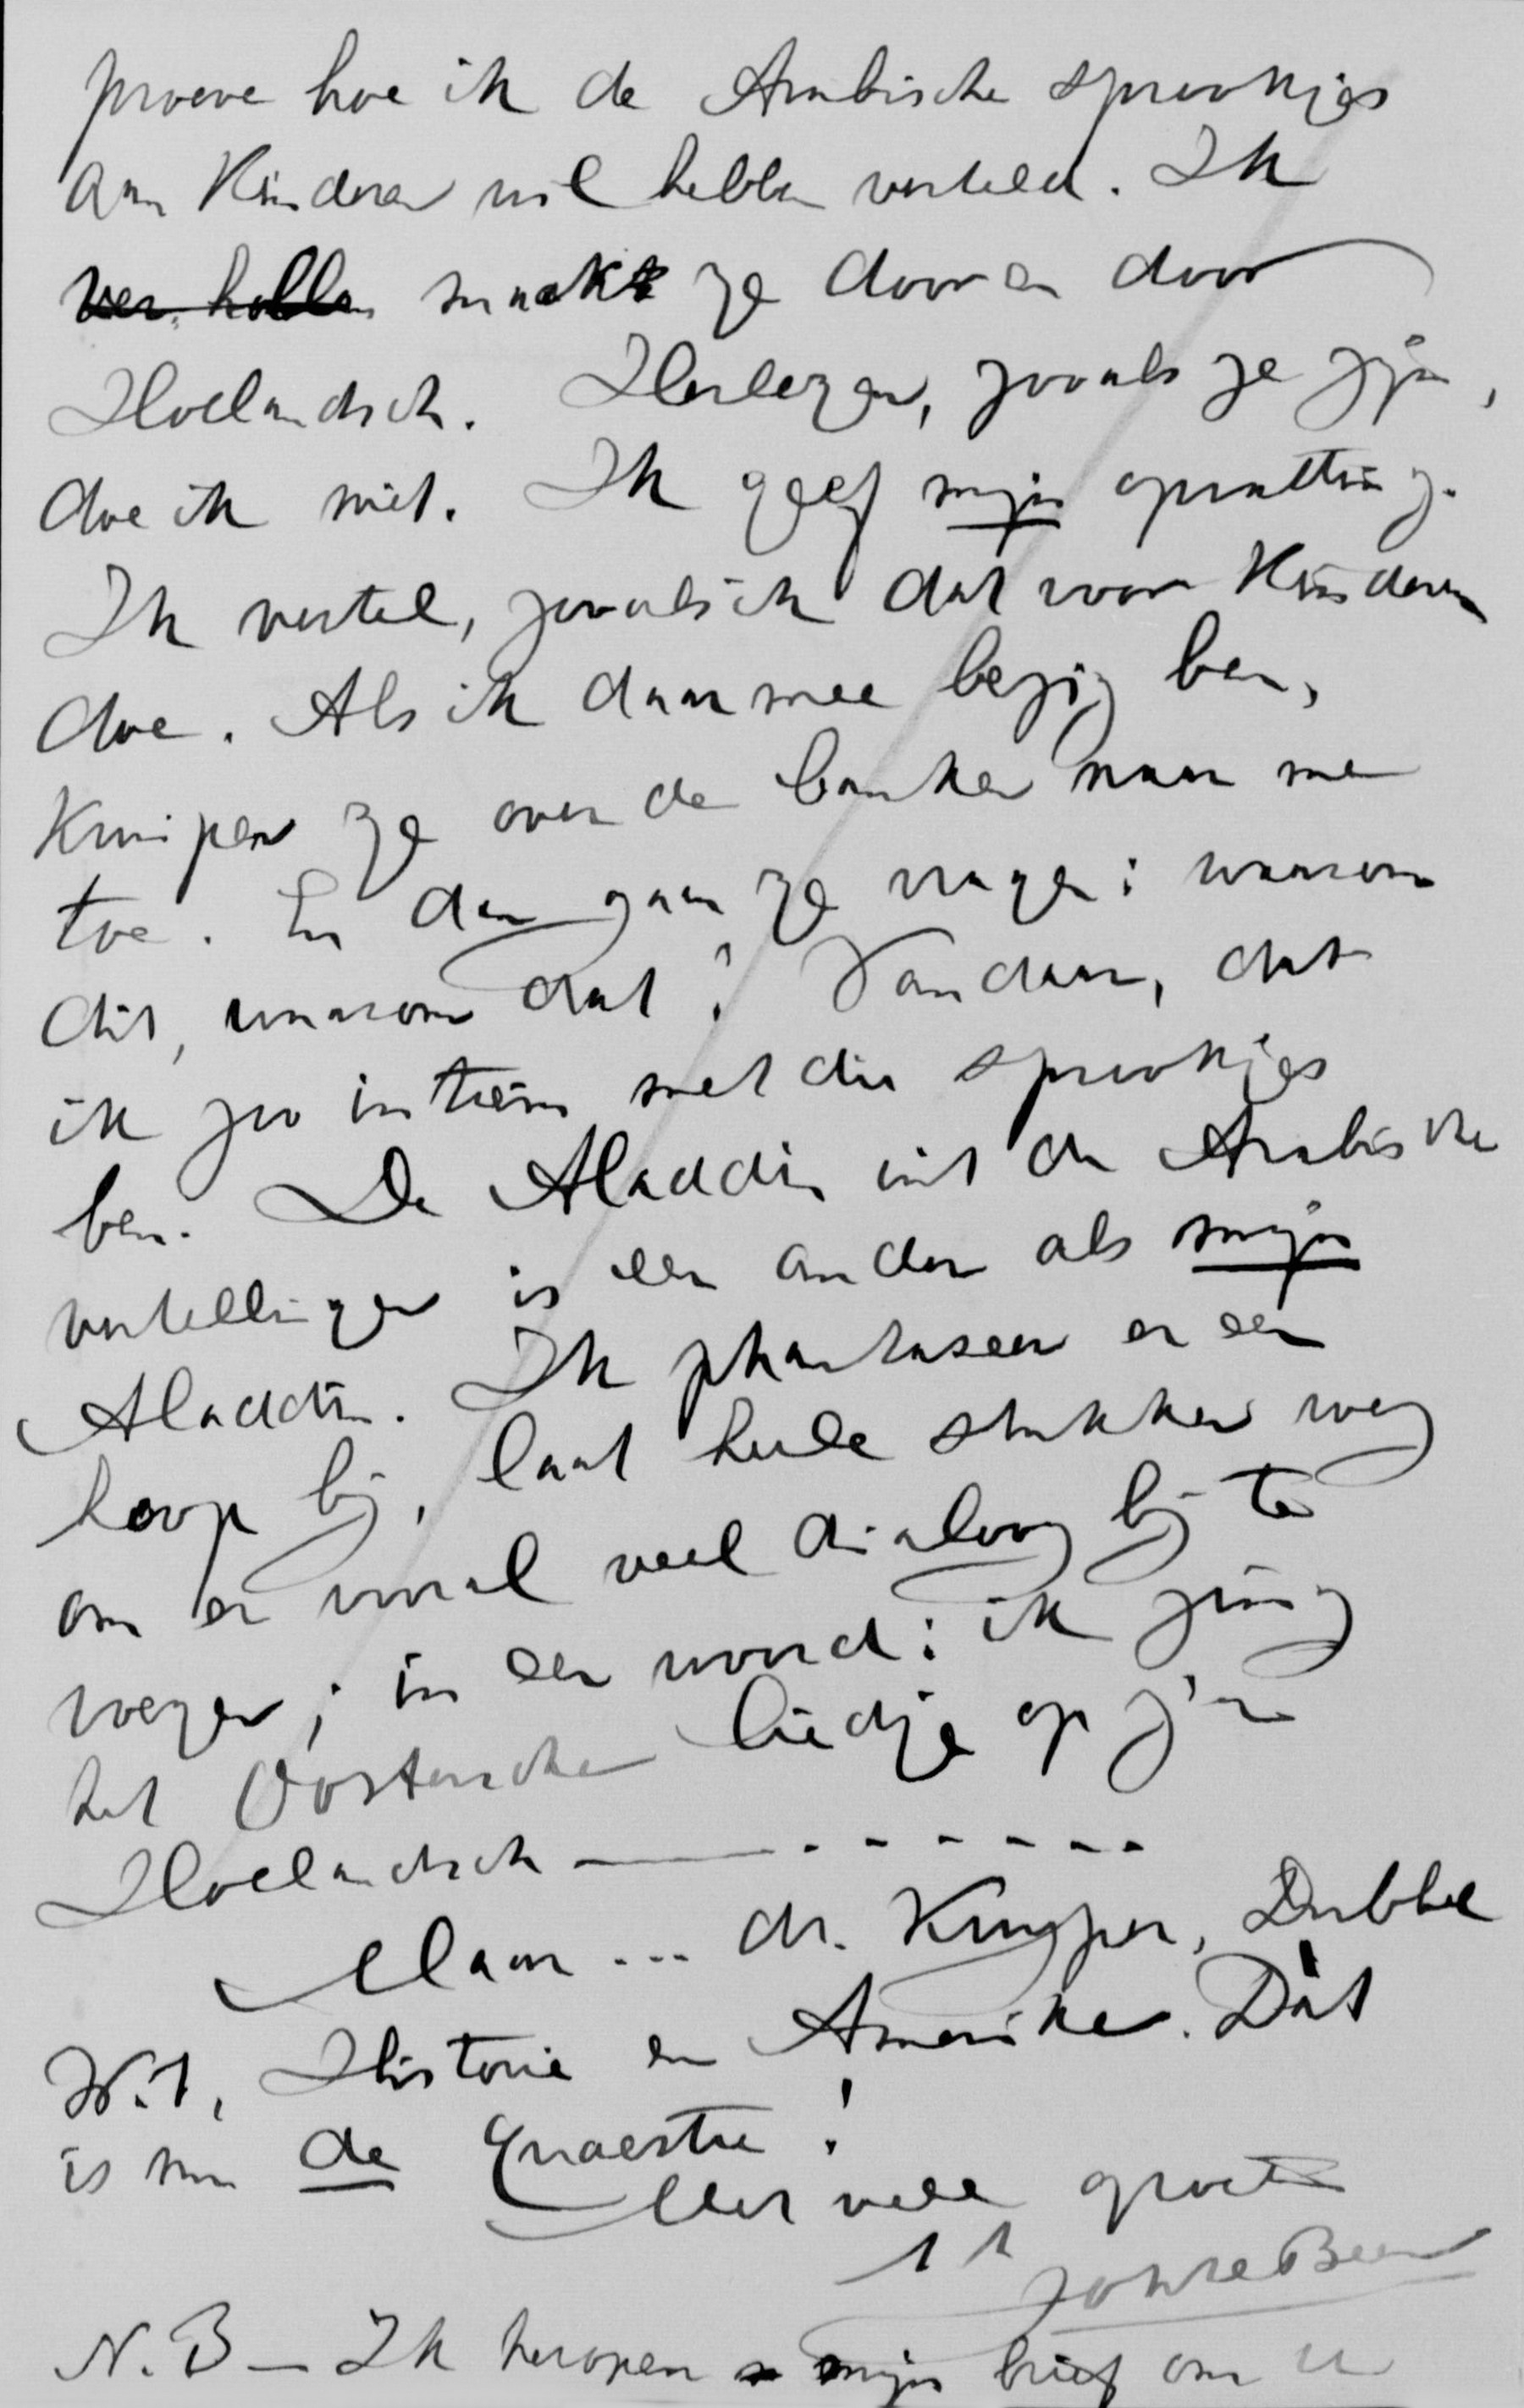 proeve hoe ik de Arabische sprookjes
aan Kinderen wil hebben verteld. Ik
ver hollen maakte ze door en door
Hollandsch. Herlezen, zooals ze zijn,
doe ik niet. Ik geef mijn opvatting.
Ik vertel, zooals ik dat voor Kinderen
doe. Als ik daarmee bezig ben,
Kruipen ze over de banken naar me
toe. En dan gaan ze vragen: waarom
dit, waarom dat? Vandaar, dat
ik zoo intiem met die sprookjes
ben. De Aladdin uit de Arabische
vertellingen is een ander als mijn
Aladdin. Ik phantaseer er een
hoop bij, laat heele stukken weg
om er vooral veel dialoog bij te
voegen; in een woord: ik zing
het Oostersche liedje op z'n
Hollandsch — - - - - - -
Maar ... dr. Kuyper, Dubbel
Wit, Historie en Amerika. Dàt
is nu de Quaestie!
Met veel groeten
tt
Joh. H. Been
N.B — Ik heropen mijn brief om u